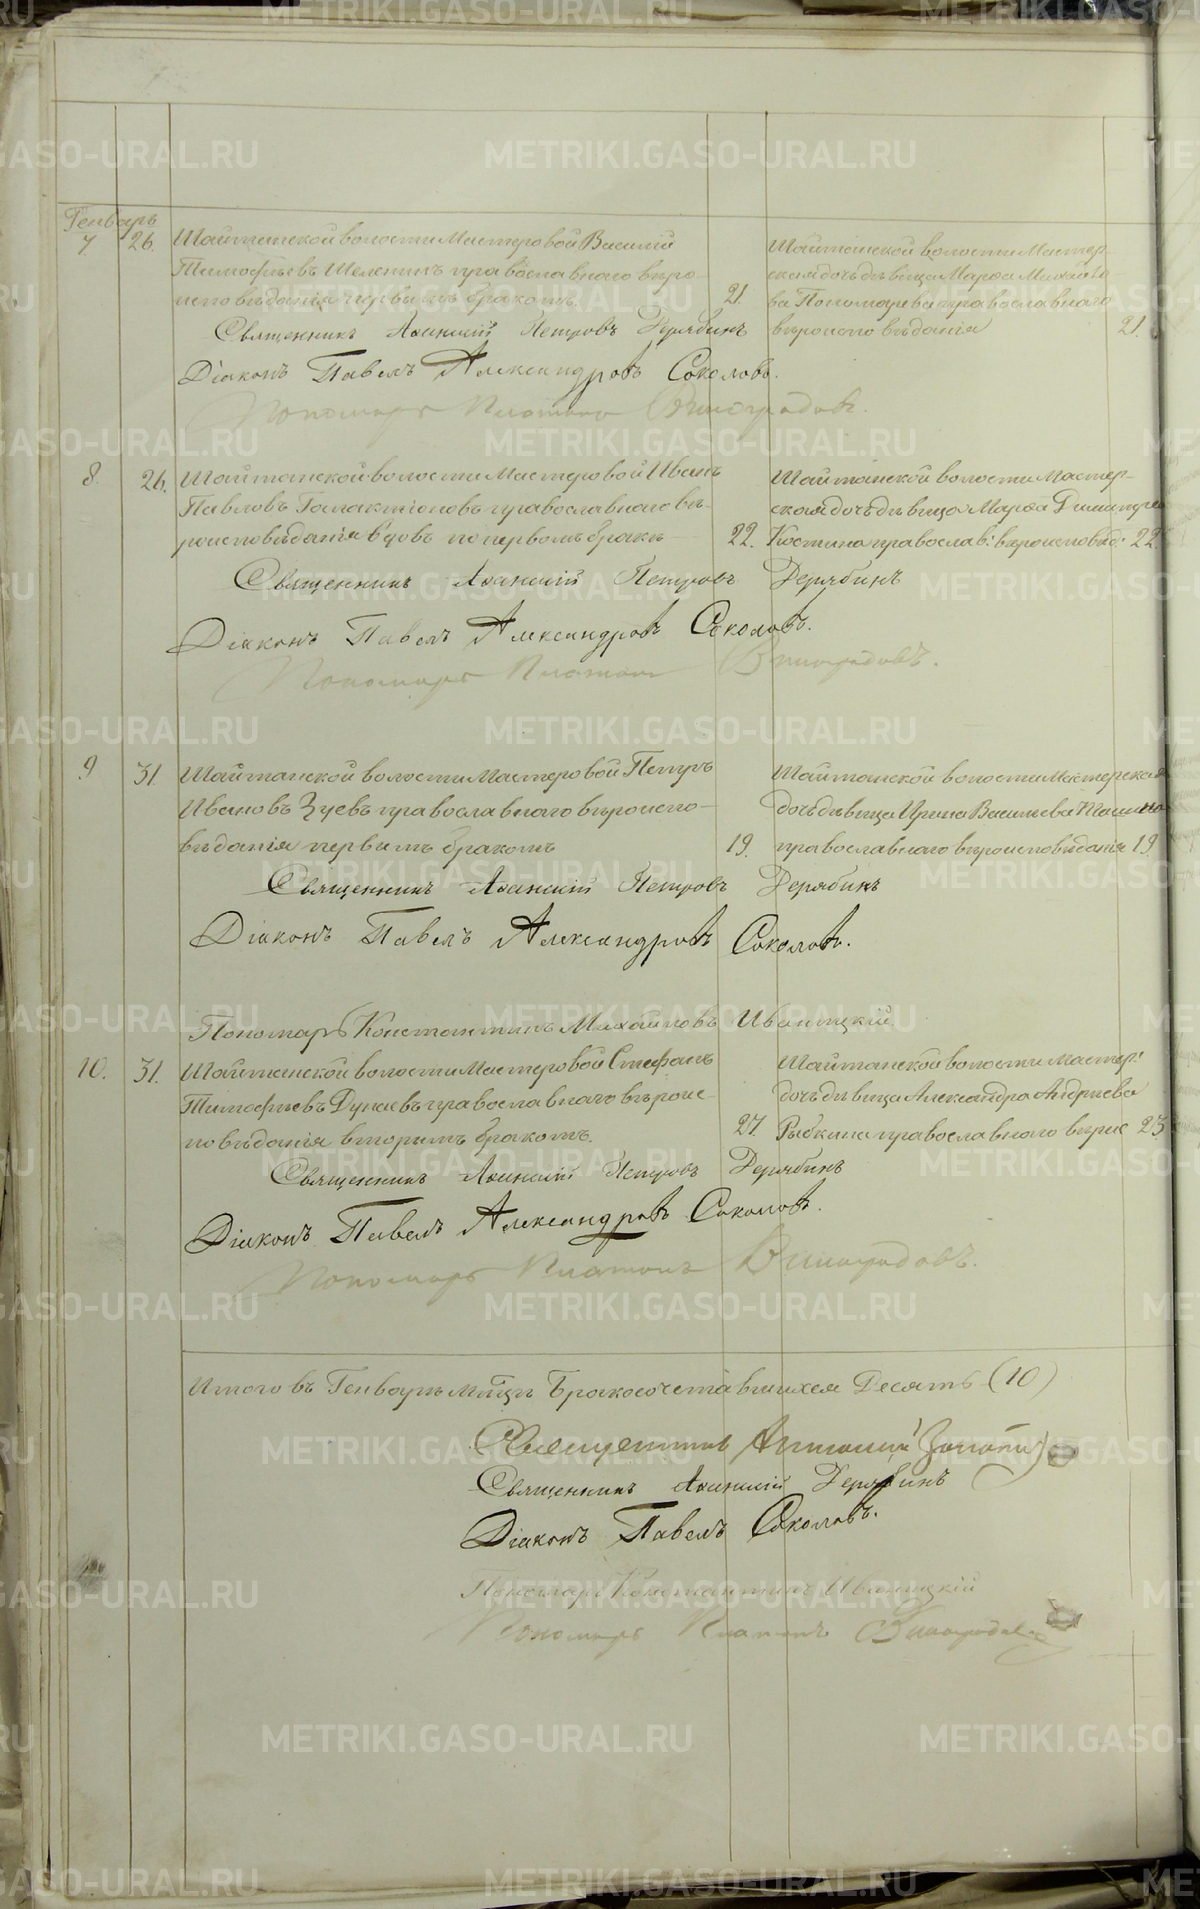 Генварь
7 26. Шайтанской волости Мастеровой Василий
Тимофѣевъ Шеленинъ православнаго вѣро-
исповѣданія первымъ бракомъ. 21.
Шайтанской волости Мастер-
ская дочь дѣвица Марѳа Михайло-
ва Пономарева православнаго
вѣроисповѣданія 21.
Священникъ Афанасій Петровъ Дерябинъ
Діаконъ Павелъ Александровъ Соколовъ.
Пономарь Платонъ Виноградовъ.
8. 26. Шайтанской волости Мастеровой Иванъ
Павловъ Галактіоновъ православнаго вѣ-
роисповѣданія вдовъ по первомъ бракѣ 22.
Шайтанской волости Мастер-
ская дочь дѣвица Марѳа Димитріева
Костина православ: вѣроисповѣд: 22
Священникъ Афанасій Петровъ Дерябинъ
Діаконъ Павелъ Александровъ Соколовъ.
Пономарь Платонъ Виноградовъ.
9 31. Шайтанской волости Мастеровой Петръ
Ивановъ Зуевъ православнаго вѣроиспо-
вѣданія первымъ бракомъ 19.
Шайтанской волости Мастерская
дочь дѣвица Ирина Васильева
православнаго вѣроисповѣданія 19
Священникъ Афанасій Петровъ Дерябинъ
Діаконъ Павелъ Александровъ Соколовъ.
Пономарь Константинъ Михайловъ Иваницкій.
10. 31. Шайтанской волости Мастеровой Стефанъ
Тимофѣевъ Дунаевъ православнаго вѣроис-
повѣданія вторымъ бракомъ. 27.
Шайтанской волости мастер:
дочь дѣвица Александра Андреева
Рыбкина православнаго вѣроис 23
Священникъ Афанасій Петровъ Дерябинъ
Діаконъ Павелъ Александровъ Соколовъ.
Пономарь Платонъ Виноградовъ.
Итого въ Генварѣ мѣцѣ Бракосочетавшихся Десять (10)
Священникъ Антоній
Священникъ Афанасій Дерябинъ
Діаконъ Павелъ Соколовъ.
Пономарь Константинъ Иваницкій
Пономарь Платонъ Виноградовъ
METRIKI.GASO-URAL.RU